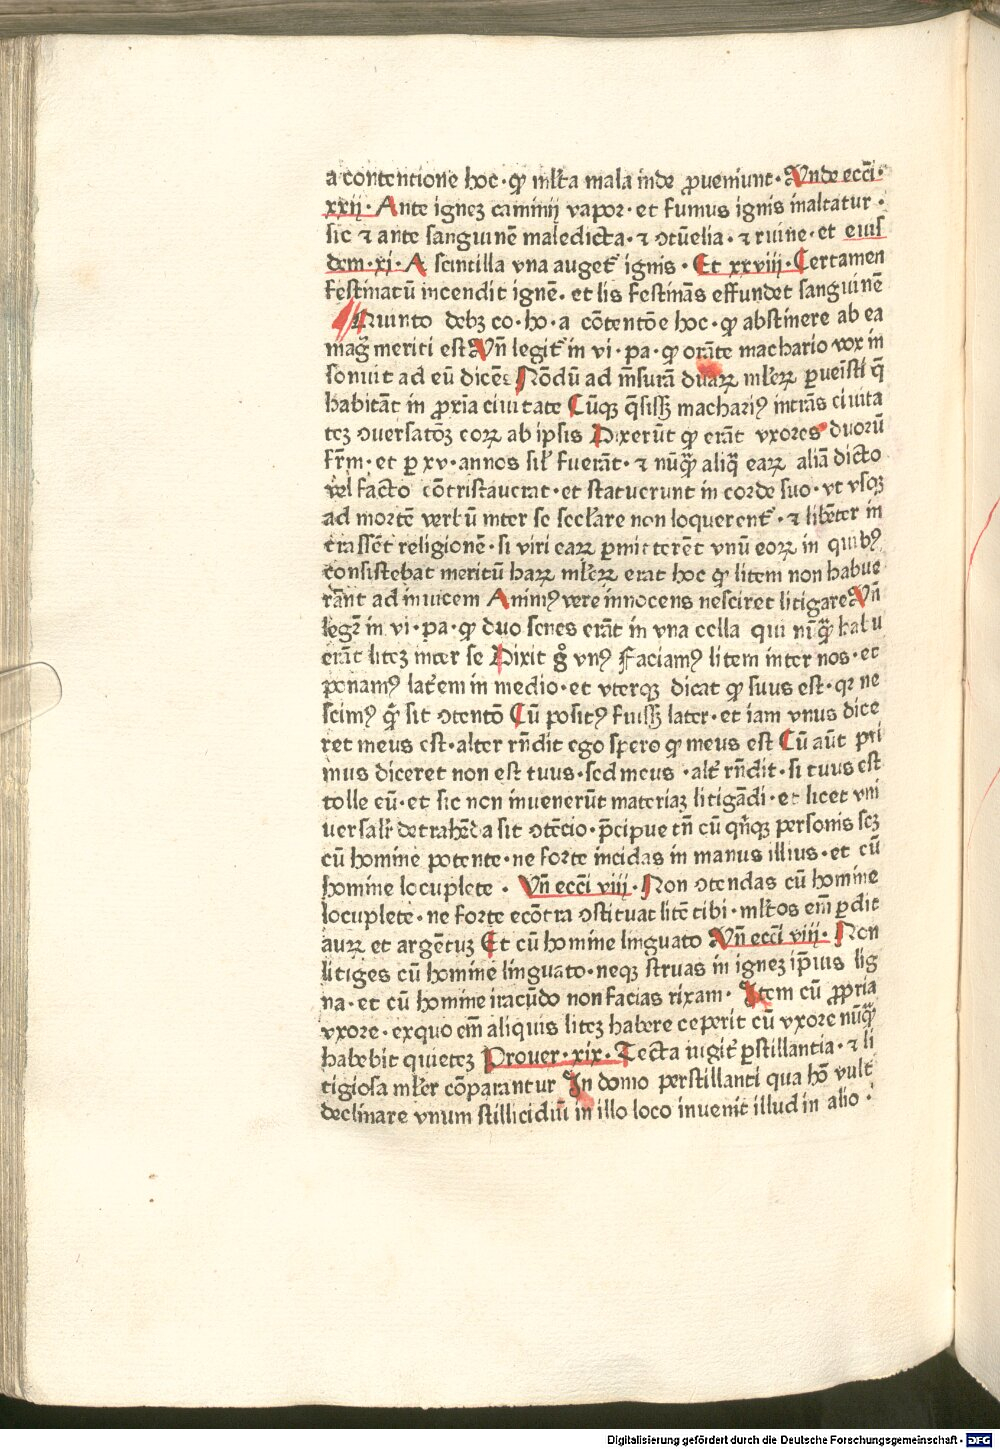 a contentione hoc · ꝙ ml̃ta mala inde ꝓveniunt · Vnde ecc̃i ·
xxij · Ante igneꝫ caminij vapor · et fumus ignis inaltatur ·
sic ⁊ ante sanguinẽ maledicta · ⁊ ↄtũelia · ⁊ ruine · et eius
dem · xi · A scintilla vna auget᷑ ignis · Et xxviii · Certamen
festinatũ incendit ignẽ · et lis festinãs effundet sanguinẽ
Quinto debꝫ co · ho · a cõtentõe hoc · ꝙ abstinere ab ea
mag̃ meriti est Vñ legit᷑ in vi · pa · ꝙ orãte machario vox in
sonuit ad eũ dicẽs Nõdũ ad m̃surã duaꝝ ml̃eꝝ ꝑueĩsti q̃
habitãt in ꝓxĩa ciuitate Cũqꝫ q̃sisꝫ machariꝰ intrãs ciuita
teꝫ ↄversatõꝫ eoꝝ ab ipsis Dixerũt ꝙ erãt vxores duorũ
fr̃m · et ꝑ xv · annos sil̃ fuerãt · ⁊ nũq̃ꝫ aliq̃ eaꝝ aliã dicto
vel facto cõtristaverat · et statuerunt in corde suo · vt vsqꝫ
ad mortẽ verbũ inter se sec̃lare non loquerent᷑ · ⁊ libẽter in
trassẽt religionẽ · si viri eaꝝ ꝑmitterẽt vnũ eoꝝ in quibꝰ
consistebat meritũ haꝝ ml̃eꝝ erat hoc ꝙ litem non habue
rãnt ad invicem Animꝰ vere innocens nesciret litigare Vñ
legr̃ in vi · pa · ꝙ duo senes erãt in vna cella qui nũq̃ꝫ habu
erãt liteꝫ inter se Dixit g̊ vnꝰ Faciamꝰ litem inter nos · et
ponamꝰ lat᷑em in medio · et vterqꝫ dicat ꝙ suus est · qꝛ ne
scimꝰ q̃ sit ↄtentõ Cũ positꝰ fuissꝫ later · et iam vnus dice
ret meus est · alter rñdit ego spero ꝙ meus est Cũ aũt pri
mus diceret non est tuus · sed meus · alt᷑ rñdit · si tuus est
tolle eũ · et sic non invenerũt materiaꝫ litigãdi · et licet vni
versalr̃ detrahẽda sit ↄtẽcio · p̃cipue tñ cũ qñqꝫ personis scꝫ
cũ homine potente · ne forte incidas in manus illius · et cũ
homine locuplete · Vñ ecc̃i viij · Non ↄtendas cũ homine
locuplete · ne forte ecõtra ↄstituat litẽ tibi · ml̃tos em̃ ꝑdit
auꝝ et argẽtuꝫ Et cũ homine linguato Vñ ecc̃i viij · Non
litiges cũ homine linguato · neqꝫ struas in igneꝫ ip̃ius lig
na · et cũ homine iracũdo non facias rixam · Item cũ ꝓpria
vxore · exquo em̃ aliquis liteꝫ habere ceperit cũ vxore nũq̃ꝫ
habebit quieteꝫ Prouer · xix · Tecta iugit᷑ ꝑstillantia · ⁊ li
tigiosa ml̃er cõparantur In domo perstillanti qua hõ vult
declinare vnum stillicidiũ in illo loco invenit illud in alio ·
Digitalisierung gefördert durch die Deutsche Forschungsgemeinschaft - DFG